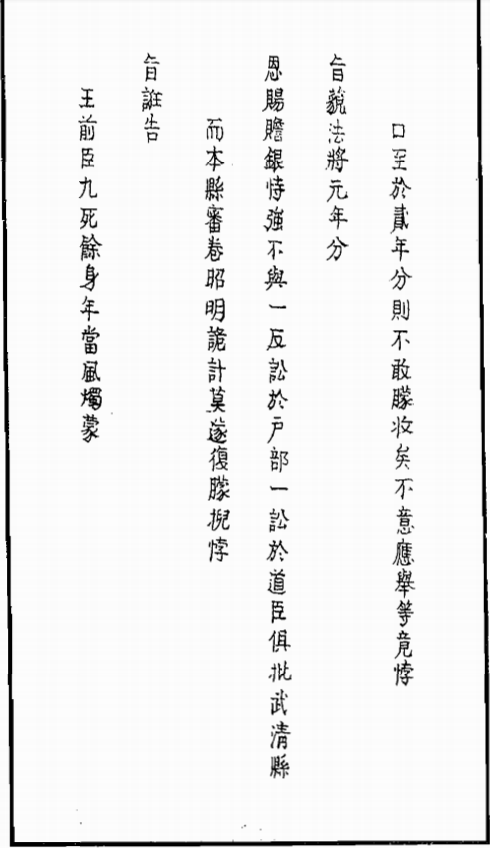 口至於貳年分則不敢朦收矣不意應舉等竟悖
旨藐法將元年分
恩賜贍銀恃强不與一反訟於戶部一訟於道臣俱批武清縣
而本縣審卷昭明詭計莫遂復朦掜悖
旨誑告
王前臣九死餘身年當風燭蒙